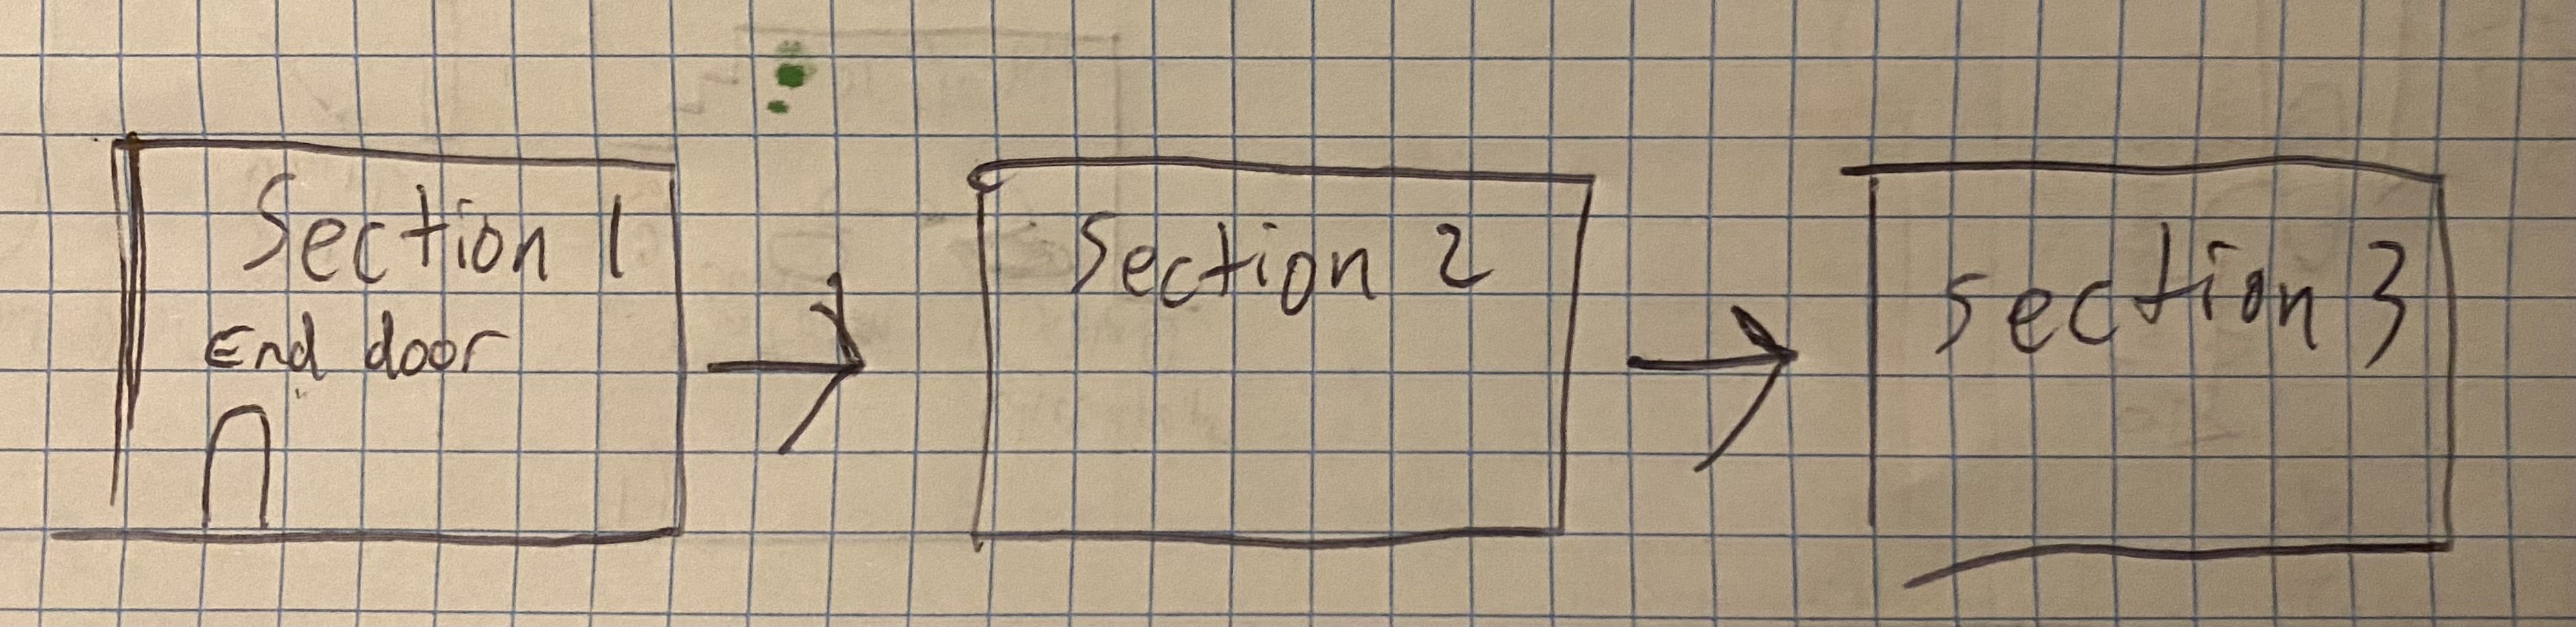 Section 1
End door
Section 2
Section 3